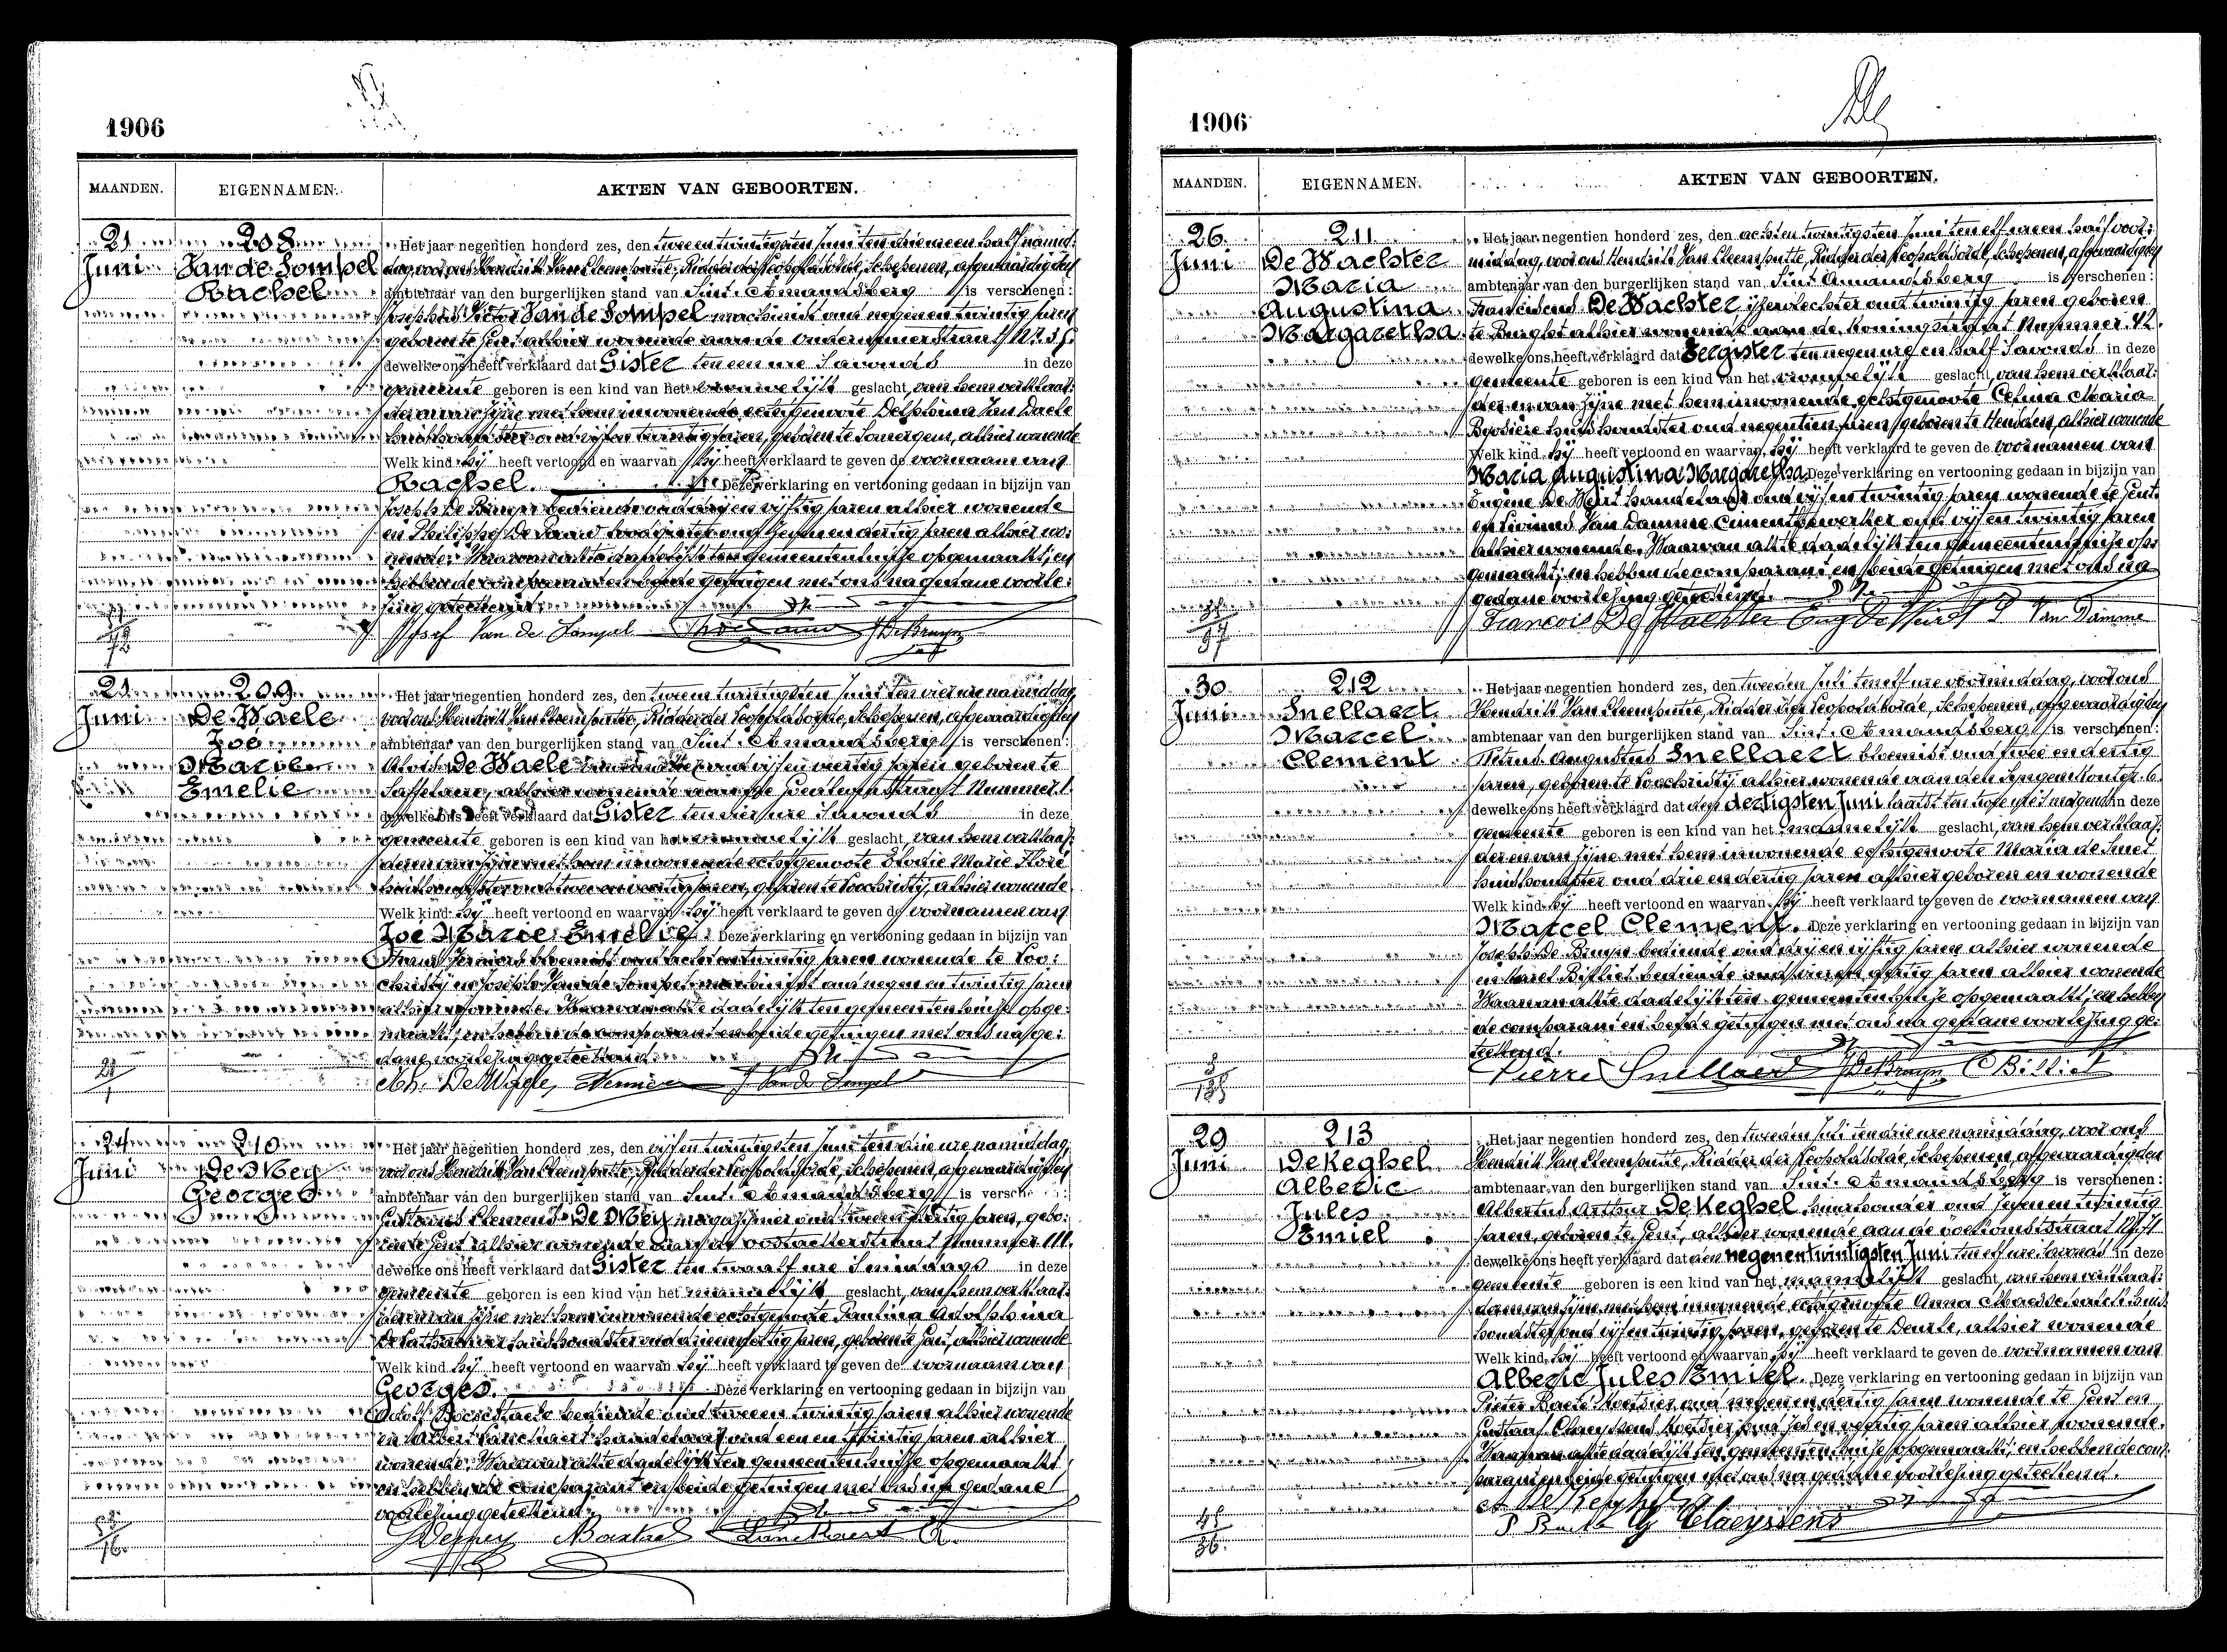 1906
MAANDEN. EIGENNAMEN. AKTEN VAN GEBOORTEN.
21 Juni
208
Van de Sompel
Rachel
Het jaar negentien honderd zes, den twee en twintigsten Juni ten drie ure en half namid-
dag, voor ons Hendrik Van Cleemputte, Ridder der Leopoldsorde, Schepenen, afgevaardigden
ambtenaar van den burgerlijken stand van Sint-Amandsberg is verschenen:
Josephus Victor Van de Sompel machinist oud negen en twintig jaren
geboren te Gent alhier wonende aan de
dewelke ons heeft verklaard dat Gister ten een ure 's avonds in deze
gemeente geboren is een kind van het vrouwelijk geslacht, van hem verklaar-
der en van zijne met hem inwonende echtgenoote Delphina Van Daele
huishoudster oud vijf en twintig jaren, geboren te Somergem, alhier wonende
Welk kind hij heeft vertoond en waarvan hij heeft verklaard te geven de voornaam van
Rachel. Deze verklaring en vertooning gedaan in bijzijn van
Joseph De Bruyn bediende oud drij en vijftig jaren alhier wonende
en Philippe De Pauw oud zeven en dertig jaren alhier wo-
nende. Waarvan akte dadelijk ten gemeentenhuize opgemaakt; en
hebben de comparant en beide getuigen met ons na gedane voorle-
zing geteekend.
Josef Van de Sompel JDeBruyn
21 Juni
209
De Waele
Zoë
Marie
Emelie
Het jaar negentien honderd zes, den twee en twintigsten Juni ten vier ure namiddag,
voor ons Hendrik Van Cleemputte, Ridder der Leopoldsorde, Schepenen, afgevaardigden
ambtenaar van den burgerlijken stand van Sint-Amandsberg is verschenen:
De Waele oud vijf en veertig jaren geboren te
Saffelaere, alhier wonende aan de Nummer 1.
dewelke ons heeft verklaard dat Gister ten vier ure 's avonds in deze
gemeente geboren is een kind van het vrouwelijk geslacht, van hem verklaar-
der en van zijne met hem inwonende echtgenoote Elodie Marie Floré
huishoudster oud twee en veertig jaren, geboren te Loochristij, alhier wonende
Welk kind hij heeft vertoond en waarvan hij heeft verklaard te geven de voornamen van
Zoë Marie Emelie. Deze verklaring en vertooning gedaan in bijzijn van
bloemist oud acht en twintig jaren wonende te Loo-
christij en Joseph Van de Sompel machinist oud negen en twintig jaren
alhier wonende. Waarvan akte dadelijk ten gemeentenhuize opge-
maakt; en hebben de comparant en beide getuigen met ons na ge-
dane voorlezing geteekend.
De Waele J. Van de Sompel
24 Juni
210
De Mey
Georges
Het jaar negentien honderd zes, den vijf en twintigsten Juni ten drie ure namiddag,
voor ons Hendrik Van Cleemputte, Ridder der Leopoldsorde, Schepenen, afgevaardigden
ambtenaar van den burgerlijken stand van Sint-Amandsberg is versch
Gustavus Clemens De Mey magazijnier oud twee en dertig jaren, gebo-
ren te Gent alhier wonende aan de Oostackerstraat Nummer 111.
dewelke ons heeft verklaard dat Gister ten twaalf ure 's middags in deze
gemeente geboren is een kind van het mannelijk geslacht, van hem verklaar-
der en van zijne met hem inwonende echtgenoote Paulina Adolphina
huishoudster oud jaren, geboren te Gent, alhier wonende
Welk kind hij heeft vertoond en waarvan hij heeft verklaard te geven de voornaam van
Georges. Deze verklaring en vertooning gedaan in bijzijn van
bediende oud twee en twintig jaren alhier wonende
en Albert handelaar oud een en twintig jaren alhier
wonende. Waarvan akte dadelijk ten gemeentenhuize opgemaakt
en hebben de comparant en beide getuigen met ons na gedane
voorlezing geteekend.
1906
MAANDEN. EIGENNAMEN. AKTEN VAN GEBOORTEN.
26 Juni
211
De Wachter
Maria
Augustina
Margaretha
Het jaar negentien honderd zes, den acht en twintigsten Juni ten elf uren half voor-
middag, voor ons Hendrik Van Cleemputte, Ridder der Leopoldsorde, Schepenen, afgevaardigden
ambtenaar van den burgerlijken stand van Sint Amandsberg is verschenen:
Franciscus De Wachter ijzervlechter oud twintig jaren geboren
te Burght alhier wonende aan de Koningstraat Nummer 42.
dewelke ons heeft verklaard dat Eergister ten negen ure en half 's avonds in deze
gemeente geboren is een kind van het vrouwelijk geslacht, van hem verklaar-
der en van zijne met hem inwonende echtgenoote Celina Maria
huishoudster oud negentien jaren, geboren te Heusden, alhier wonende
Welk kind hij heeft vertoond en waarvan hij heeft verklaard te geven de voornamen van
Maria Augustina Margaretha Deze verklaring en vertooning gedaan in bijzijn van
Eugène handelaar oud vijf en twintig jaren wonende te Gent
en Livinus Van Damme cimentbewerker oud vijf en twintig jaren
alhier wonende. Waarvan akte dadelijk ten gemeentenhuize op-
gemaakt; en hebben de comparant en beide getuigen met ons na
gedane voorlezing geteekend.
Francois De Wachter Van Damme
97
30 Juni
212
Snellaert
Marcel
Clement
Het jaar negentien honderd zes, den tweeden Juli ten elf ure voormiddag, voor ons
Hendrik Van Cleemputte, Ridder der Leopoldsorde, Schepenen, afgevaardigden
ambtenaar van den burgerlijken stand van Sint-Amandsberg is verschenen:
Petrus Augustus Snellaert bloemist oud twee en dertig
jaren, geboren te Loochristij alhier wonende aan den
dewelke ons heeft verklaard dat den dertigsten Juni laatst ten twee ure 's morgens in deze
gemeente geboren is een kind van het mannelijk geslacht, van hem verklaar-
der en van zijne met hem inwonende echtgenoote Maria de Smet
huishoudster oud drie en dertig jaren alhier geboren en wonende
Welk kind hij heeft vertoond en waarvan hij heeft verklaard te geven de voornamen van
Marcel Clement. Deze verklaring en vertooning gedaan in bijzijn van
Joseph De Bruyn bediende oud drij en vijftig jaren alhier wonende
en Karel Billiet bediende oud vier en dertig jaren alhier wonende
Waarvan akte dadelijk ten gemeentenhuize opgemaakt; en hebben
de comparant en beide getuigen met ons na gedane voorlezing ge-
teekend.
Pierre Snellaert JDeBruyn C Billiet
29 Juni
213
De Keghel
Alberic
Jules
Emiel
Het jaar negentien honderd zes, den tweeden Juli ten drie ure namiddag, voor ons
Hendrik Van Cleemputte, Ridder der Leopoldsorde, Schepenen, afgevaardigden
ambtenaar van den burgerlijken stand van Sint-Amandsberg is verschenen:
Albertus Arthur De Keghel huurhouder oud zeven en twintig
jaren, geboren te Gent, alhier wonende aan de
dewelke ons heeft verklaard dat den negen en twintigsten Juni ten elf ure 's avonds in deze
gemeente geboren is een kind van het mannelijk geslacht, van hem verklaar-
der en van zijne met hem inwonende echtgenoote Anna huis-
houdster oud vijf en twintig jaren, geboren te Deurle, alhier wonende
Welk kind hij heeft vertoond en waarvan hij heeft verklaard te geven de voornamen van
Alberic Jules Emiel. Deze verklaring en vertooning gedaan in bijzijn van
Pieter Baete koetsier oud negen en dertig jaren wonende te Gent en
Gustaaf Claeyssens koetsier oud zes en veertig jaren alhier wonende.
Waarvan akte dadelijk ten gemeentenhuize opgemaakt; en hebben de com-
parant en beide getuigen met ons na gedane voorlezing geteekend.
G Claeyssens